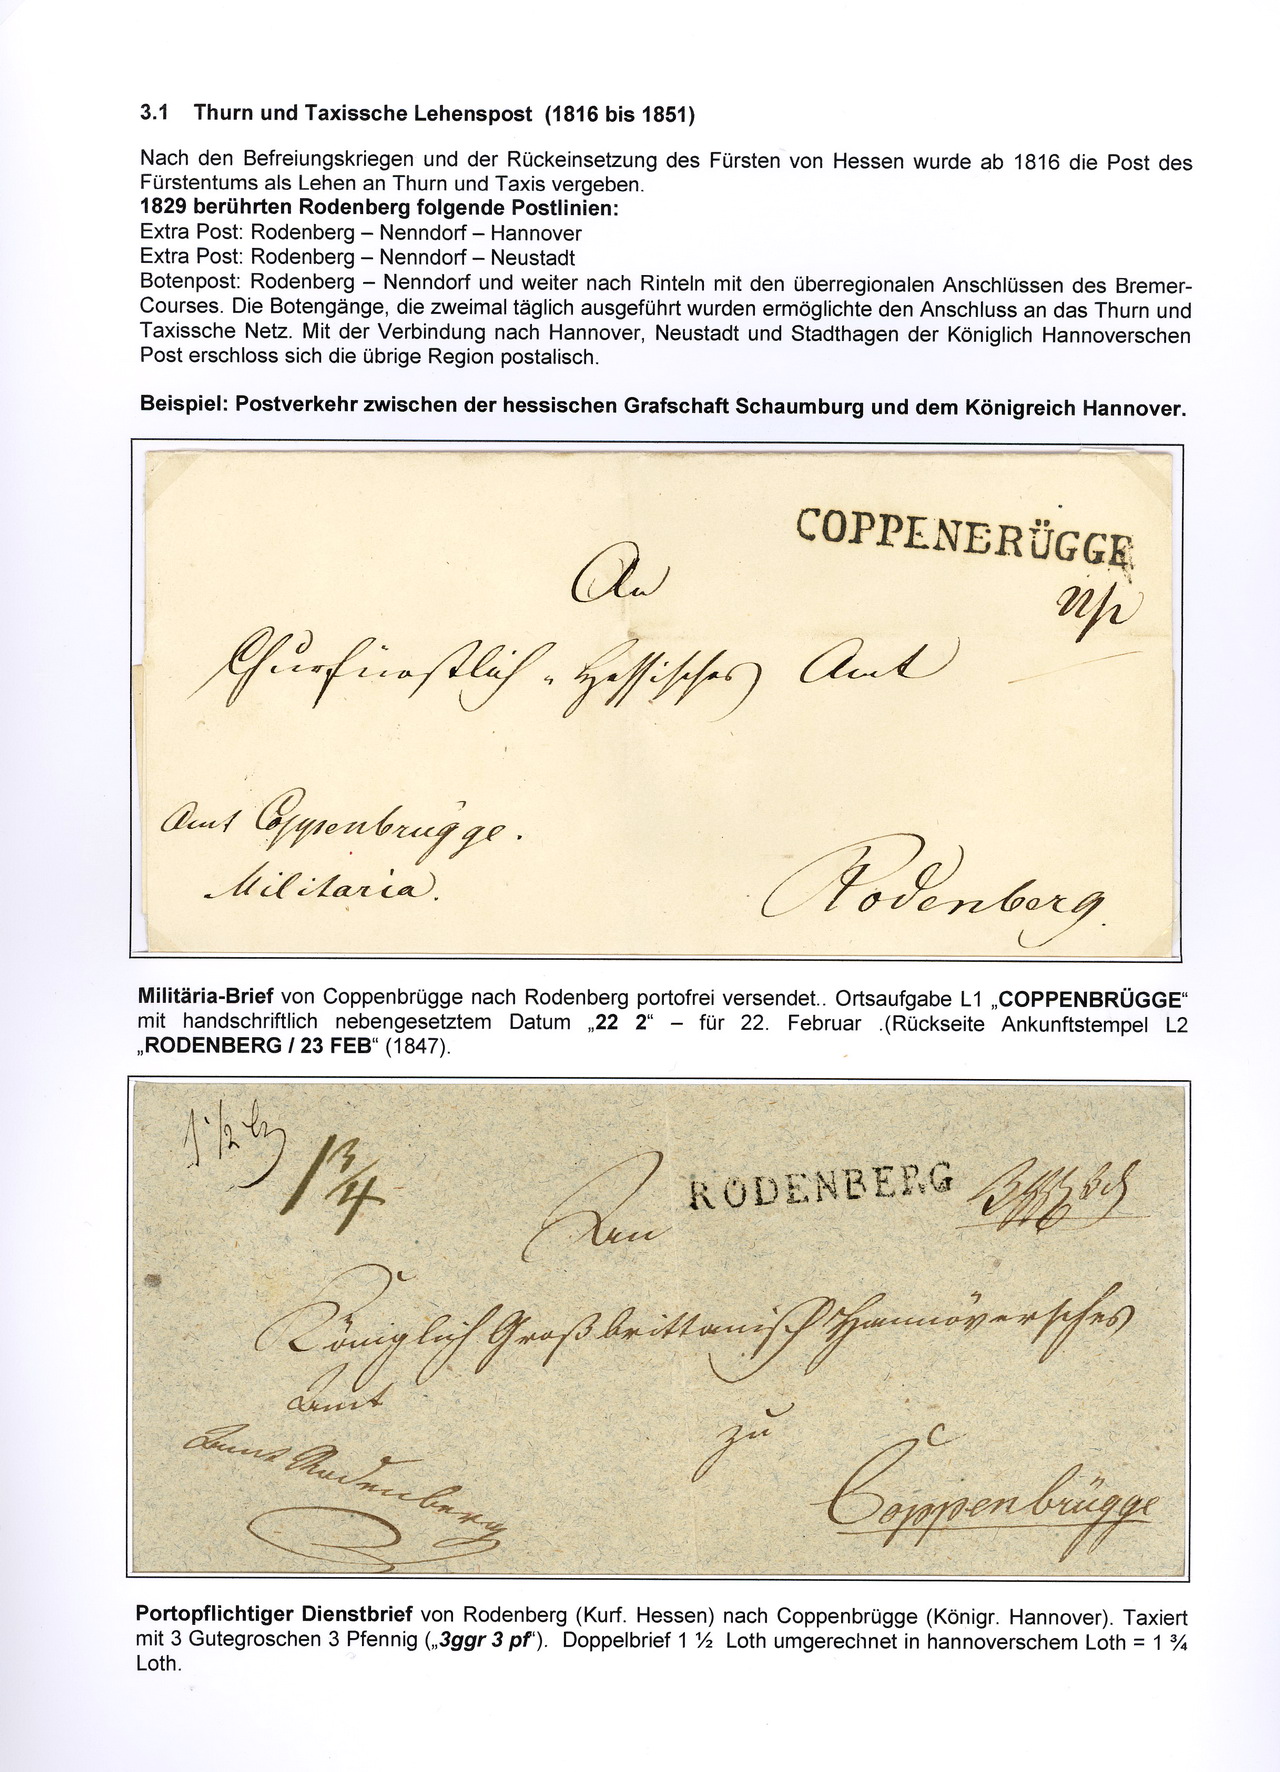 3.1 Thurn und Taxissche Lehenspost (1816 bis 1851)
Nach den Befreiungskriegen und der Rückeinsetzung des Fürsten von Hessen wurde ab 1816 die Post des
Fürstentums als Lehen an Thurn und Taxis vergeben.
1829 berührten Rodenberg folgende Postlinien:
Extra Post: Rodenberg – Nenndorf – Hannover
Extra Post: Rodenberg – Nenndorf – Neustadt
Botenpost: Rodenberg – Nenndorf und weiter nach Rinteln mit den überregionalen Anschlüssen des Bremer-
Courses. Die Botengänge, die zweimal täglich ausgeführt wurden ermöglichte den Anschluss an das Thurn und
Taxissche Netz. Mit der Verbindung nach Hannover, Neustadt und Stadthagen der Königlich Hannoverschen
Post erschloss sich die übrige Region postalisch.
Beispiel: Postverkehr zwischen der hessischen Grafschaft Schaumburg und dem Königreich Hannover.
COPPENBRÜGGE
An
22/2
Churfürstlich-Hessisches Amt
Amt Coppenbrügge.
Militaria.
Rodenberg.
Militäria-Brief von Coppenbrügge nach Rodenberg portofrei versendet.. Ortsaufgabe L1 „COPPENBRÜGGE“
mit handschriftlich nebengesetztem Datum „22 2“ – für 22. Februar .(Rückseite Ankunftstempel L2
„RODENBERG / 23 FEB“ (1847).
1 1/2
1 3/4
RODENBERG
An
Königlich Großbrittanisch Hannöversches
Amt
zu
Amt Rodenberg
Coppenbrügge
Portopflichtiger Dienstbrief von Rodenberg (Kurf. Hessen) nach Coppenbrügge (Königr. Hannover). Taxiert
mit 3 Gutegroschen 3 Pfennig („3ggr 3 pf“). Doppelbrief 1 ½ Loth umgerechnet in hannoverschem Loth = 1 ¾
Loth.